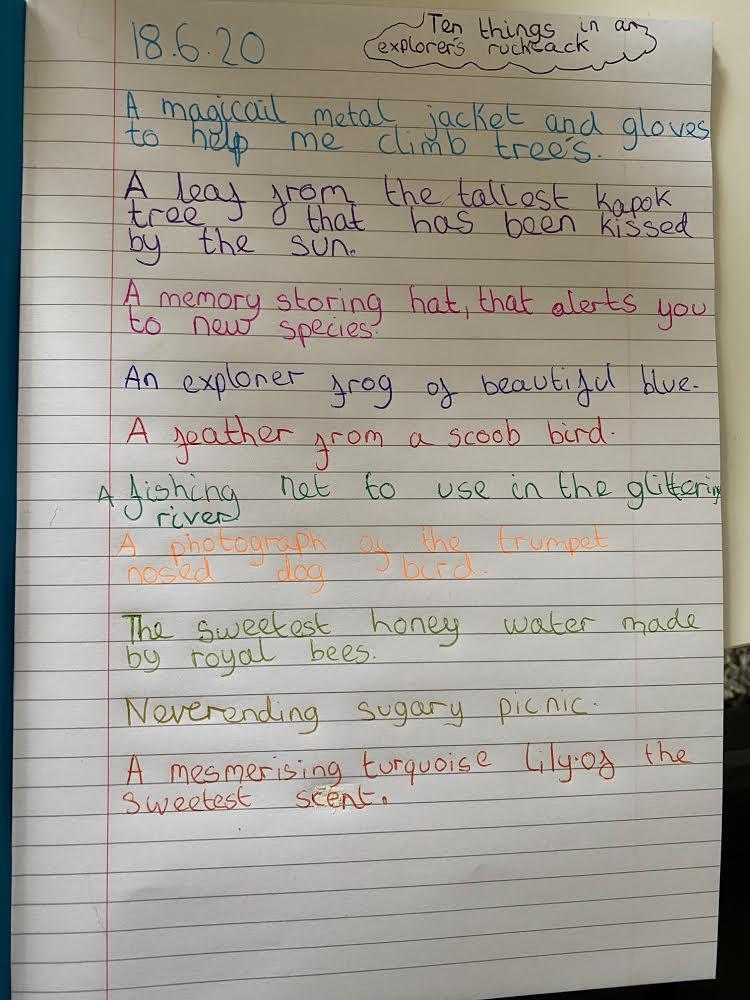 18.6.20
Ten things in an
explorer's rucksack
A magicail metal jacket and gloves
to help me climb tree's.
A leaf from the tallest kapok
tree that has been kissed
by the sun.
A memory storing hat, that alerts you
to new species.
An explorer frog of beautiful blue.
A feather from a scoob bird.
A fishing net to use in the glittering
river
A photograph of the trumpet
nosed dog bird.
The sweetest honey water made
by royal bees.
Neverending sugary picnic.
A mesmerising turquoise lily of the
sweetest scent.